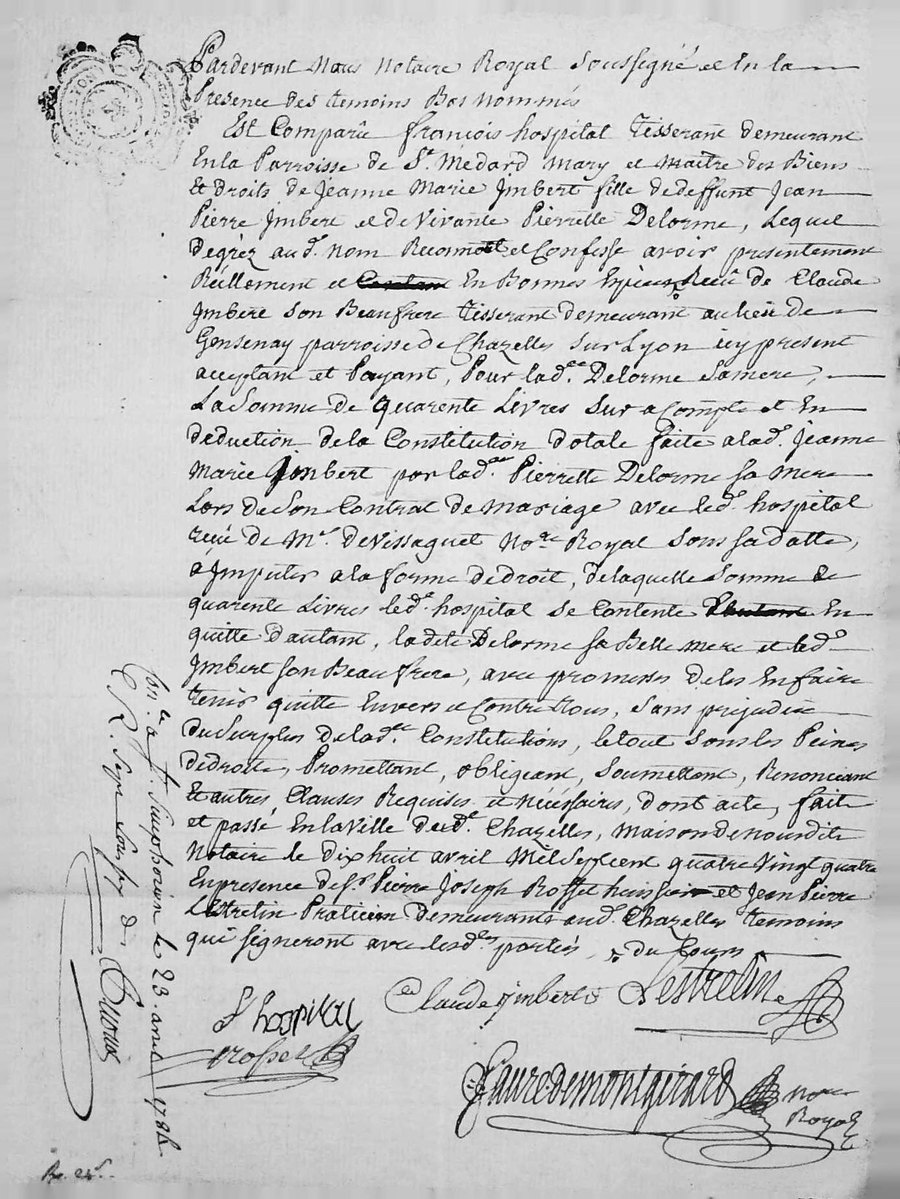 Pardevant Nous Notaire Royal soussegné et En la
Presence des temoins Bas nommés
Est Comparû françois hospital tisserant demeurant
En la Parroisse de St. Médard mary et maitre des Biens
Et droits de Jeanne Marie Jmbert fille de deffunt Jean
Pierre Jmbert et de Vivante Pierrette Delorme, Lequel
degréz aud. nom Reconnoit et Confesse avoir presentement
Réellement et En Bonnes Espèces Receû de Claude
Jmbert son Beaufrere tisserant demeurant au lieu de
Gensenay parroisse de Chazelles sur Lyon icy present
acceptant et Payant, Pour lad.ee Delorme Samere,
La Somme de quarente Livres sur a Compte et En
deduction de la Constitution dotale faite a lad. Jeanne
Marie Jmbert par lad.ee Pierrette Delorme sa mere
Lors de Son Contrat de mariage avec led. hospital
reçû de Me. deVissaguet No.re Royal sous sa datte,
a Jmputer a la forme de droit, de laquelle somme de
quarente Livres led. hospital se Contente En
quitte d'autant, la dete Delorme sa Belle mere et led.
Jmbert son Beaufrere, avec promesses de les En faire
tenir quitte Envers et Contre tous, sans prejudice
du Surplus de lad.ee Constitutions, le tout sous les Peines
de droits, Promettant, obligeant, soumettent, Renonceant
Et autres Clauses Requises et nécéssaires, dont acte, fait
et passé En la Ville dud. Chazelles, maison de nousdit
Notaire le dix huit avril Mil Sept cent quatre Vingt quatre
En presence de sr. Pierre Joseph Rosset huissier et Jean Pierre
Lestrelin Praticien demeurants aud. Chazelles temoins
qui signeront avec lesd.es parties
Claude jmbert Lestrelin
f hospital
rosset
fauredemontgirard no.re
Royal
St. Simphorien le 23 avril 1784
R.